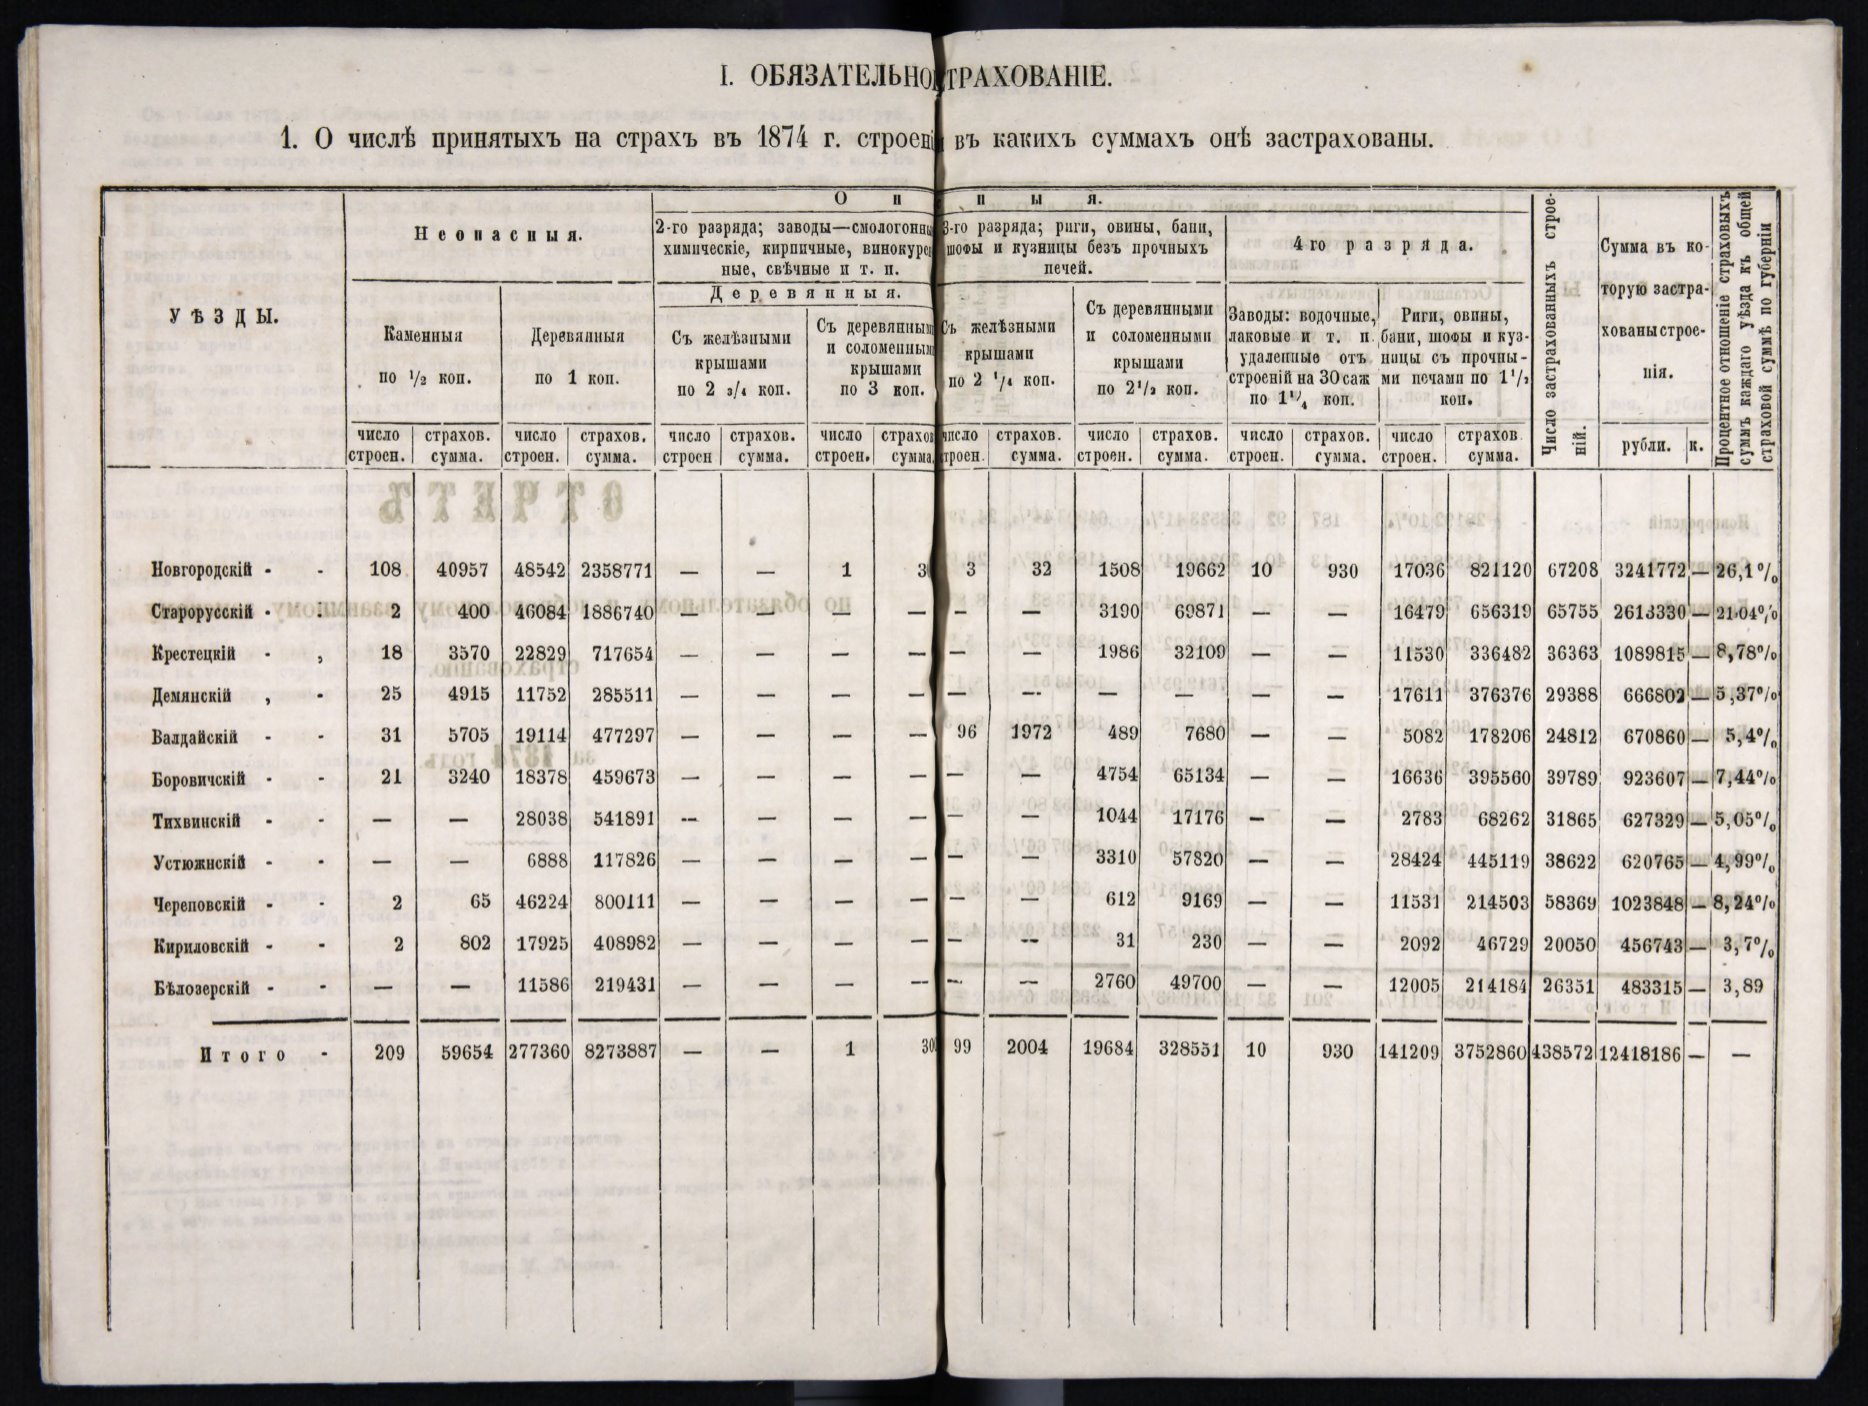 I. ОБЯЗАТЕЛЬНО ТРАХОВАНІЕ.
1. О числѣ принятыхъ на страхъ въ 1874 г. строені въ какихъ суммахъ онѣ застрахованы.
УѢЗДЫ.
Неопасныя.
О п н ы я.
2-го разряда; заводы—смологонны
химическіе, кирпичные, винокурен
ные, свѣчные и т. п.
3-го разряда; риги, овины, бани,
шофы и кузницы безъ прочныхъ
печей.
4 го разряда.
Число застрахованныхъ строе-
ній.
Сумма въ ко-
торую застра-
хованы строе-
нія.
Процентное отношеніе страховыхъ
суммъ каждаго уѣзда къ общей
страховой суммѣ по губерніи
Деревянныя.
Каменныя
по 1/2 коп.
Деревянныя
по 1 коп.
Съ желѣзными
крышами
по 2 3/4 коп.
Съ деревянными
и соломенными
крышами
по 3 коп.
Съ желѣзными
крышами
по 2 1/4 коп.
Съ деревянными
и соломенными
крышами
по 2 1/2 коп.
Заводы: водочные,
лаковые и т. п.
удаленные отъ
строеній на 30 саж
по 1 1/4 коп.
Риги, овины,
бани, шофы и куз-
ницы съ прочны-
ми печами по 1 1/2
коп.
число строен. страхов. сумма. число строен. страхов. сумма. число строен страхов. сумма. число строен. страхов сумма. число троен. страхов. сумма. число строен. страхов. сумма. число строен. страхов. сумма. число строен. страхов сумма. рубли. к.
Новгородскій - - 108 40957 48542 2358771 — — 1 3 3 32 1508 19662 10 930 17036 821120 67208 3241772 — 26,1%
Старорусскій - - 2 400 46084 1886740 — — — — — — 3190 69871 — — 16479 656319 65755 2613330 — 21,04%
Крестецкій - , 18 3570 22829 717654 — — — — — — 1986 32109 — — 11530 336482 36363 1089815 — 8,78%
Демянскій , - 25 4915 11752 285511 — — — — — — — — — — 17611 376376 29388 666802 — 5,37%
Валдайскій - - 31 5705 19114 477297 — — — — 96 1972 489 7680 — — 5082 178206 24812 670860 — 5,4%
Боровичскій - - 21 3240 18378 459673 — — — — — — 4754 65134 — — 16636 395560 39789 923607 — 7,44%
Тихвинскій - - — — 28038 541891 — — — — — — 1044 17176 — — 2783 68262 31865 627329 — 5,05%
Устюжнскій - - — — 6888 117826 — — — — — — 3310 57820 — — 28424 445119 38622 620765 — 4,99%
Череповскій - - 2 65 46224 800111 — — — — — — 612 9169 — — 11531 214503 58369 1023848 — 8,24%
Кириловскій - - 2 802 17925 408982 — — — — — — 31 230 — — 2092 46729 20050 456743 — 3,7%
Бѣлозерскій - - — — 11586 219431 — — — — — — 2760 49700 — — 12005 214184 26351 483315 — 3,89
Итого - 209 59654 277360 8273887 — — 1 30 99 2004 19684 328551 10 930 141209 3752860 438572 12418186 — —